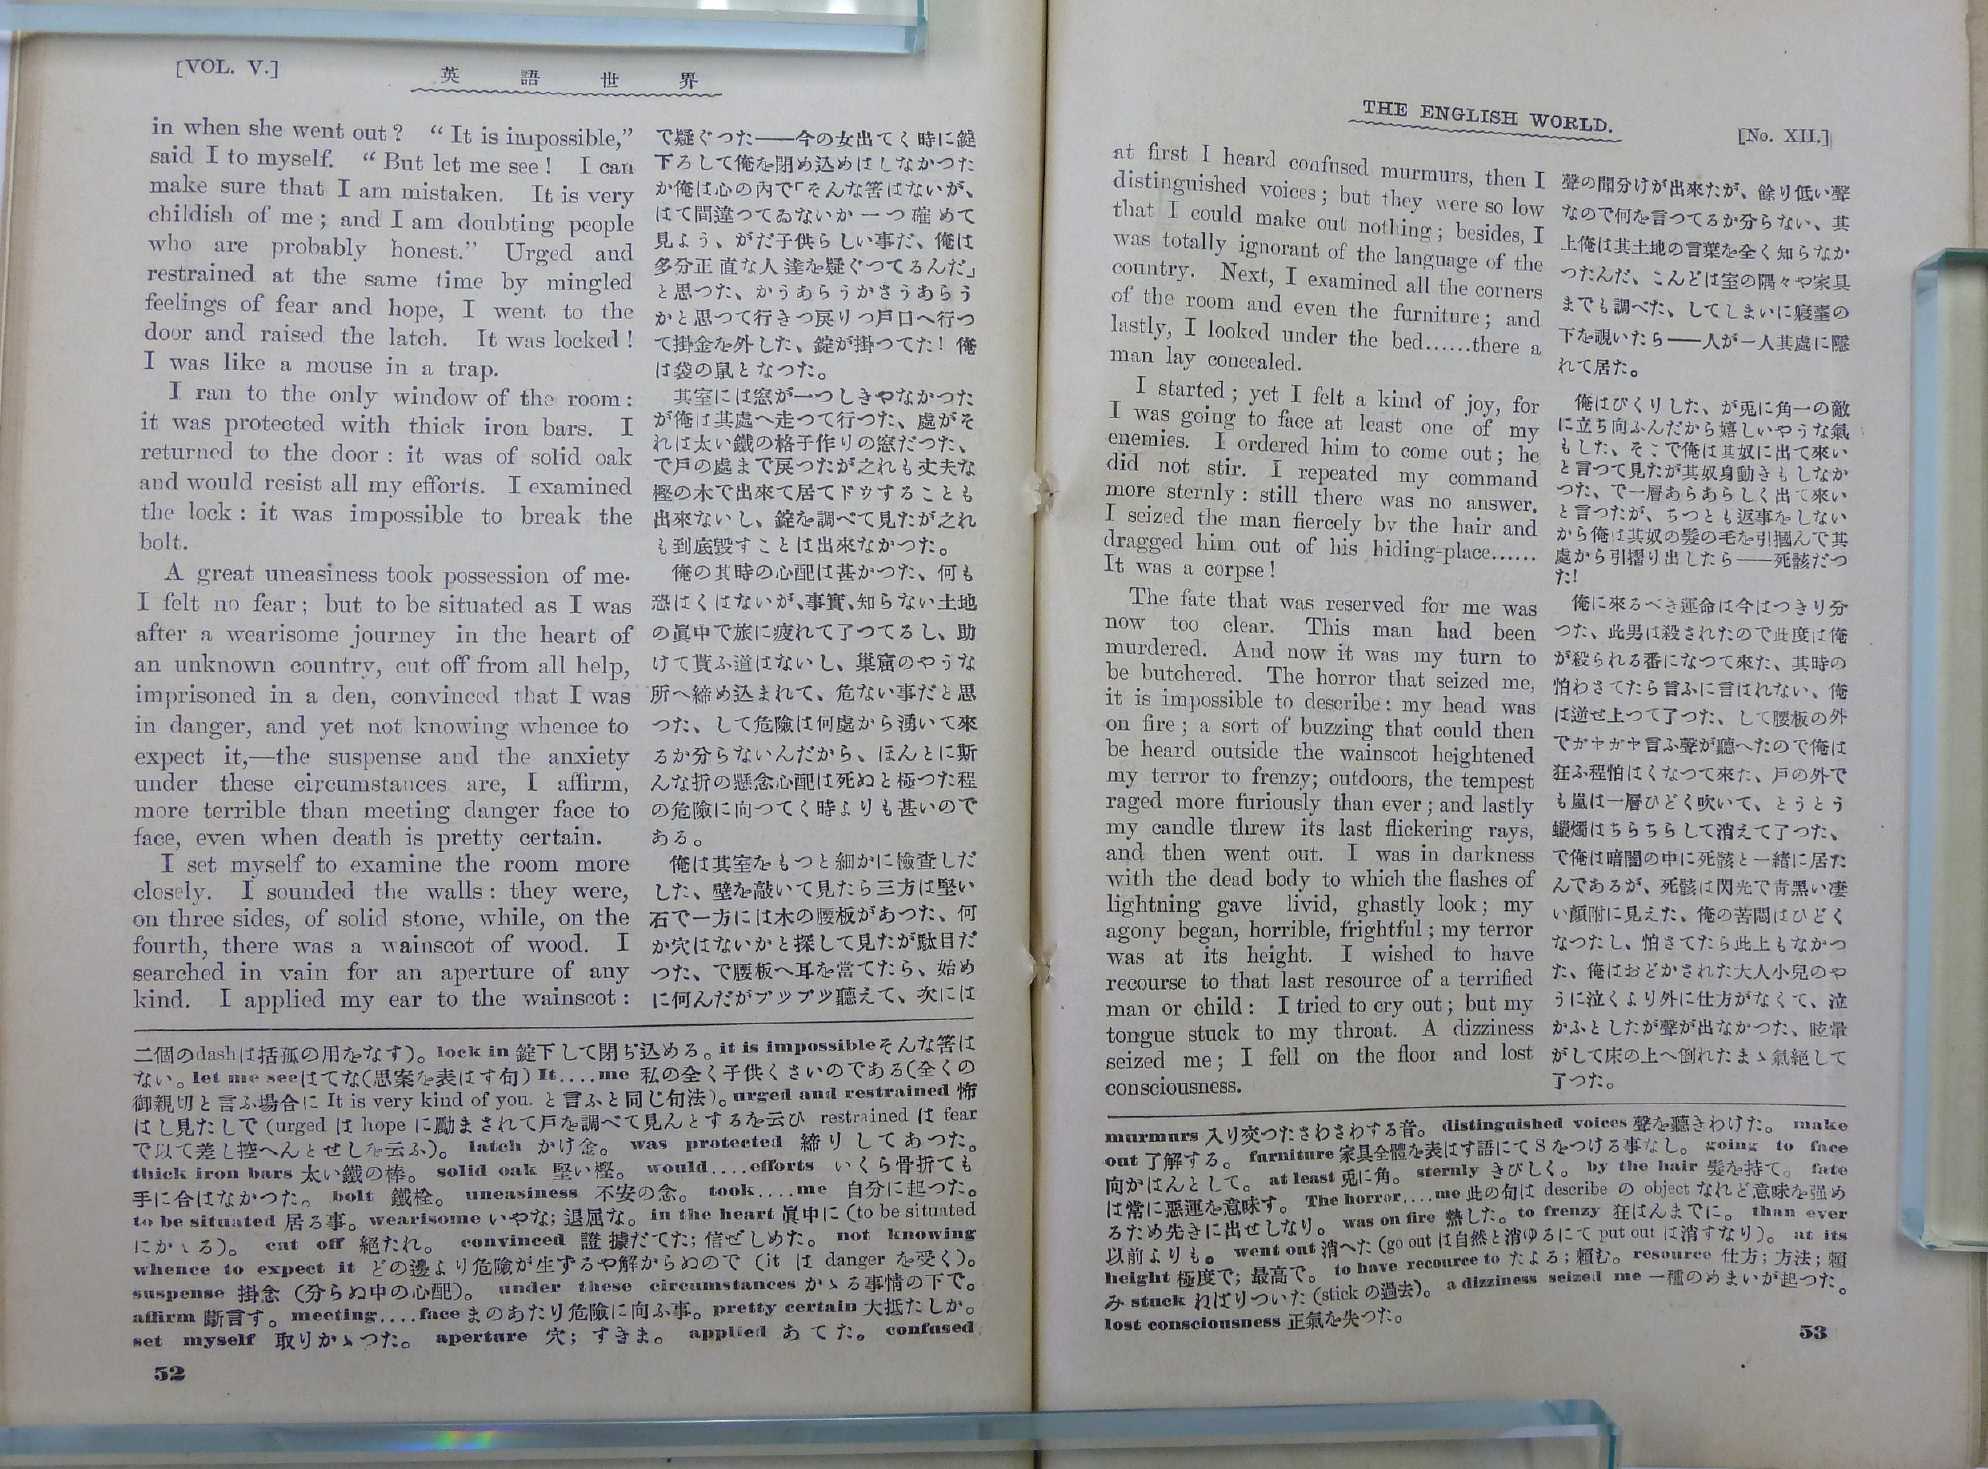 [VOL. V.]
英語世界
in when she went out? “It is impossible,”
said I to myself. “But let me see! I can
make sure that I am mistaken. It is very
childish of me; and I am doubting people
who are probably honest.” Urged and
restrained at the same time by mingled
feelings of fear and hope, I went to the
door and raised the latch. It was locked!
I was like a mouse in a trap.
I ran to the only window of the room:
it was protected with thick iron bars. I
returned to the door: it was of solid oak
and would resist all my efforts. I examined
the lock: it was impossible to break the
bolt.
A great uneasiness took possession of me.
I felt no fear; but to be situated as I was
after a wearisome journey in the heart of
an unknown country, cut off from all help,
imprisoned in a den, convinced that I was
in danger, and yet not knowing whence to
expect it,—the suspense and the anxiety
under these circumstances are, I affirm,
more terrible than meeting danger face to
face, even when death is pretty certain.
I set myself to examine the room more
closely. I sounded the walls: they were,
on three sides, of solid stone, while, on the
fourth, there was a wainscot of wood. I
searched in vain for an aperture of any
kind. I applied my ear to the wainscot:
で疑ぐつた——今の女出てく時に錠
下ろして俺を閉め込めはしなかつた
か俺は心の內で「そんな筈はないが、
はて間違つてゐないか一つ確めて
見よう、がだ子供らしい事だ、俺は
多分正直な人達を疑ぐつてるんだ」
と思つた、かうあらうかさうあらう
かと思つて行きつ戾りつ戸口へ行つ
て掛金を外した、錠が掛つてた! 俺
は袋の鼠となつた。
其室には窓が一つしきやなかつた
が俺は其處へ走つて行つた、處がそ
れは太い鐵の格子作りの窓だつた、
で戸の處まで戾つたが之れも丈夫な
樫の木で出來て居てドウすることも
出來ないし、錠を調べて見たが之れ
も到底毀すことは出來なかつた。
俺の其時の心配は甚かつた、何も
恐はくはないが、事實、知らない土地
の眞中で旅に疲れて了つてるし、助
けて貰ふ道はないし、巢窟のやうな
所へ締め込まれて、危ない事だと思
つた、して危險は何處から湧いて來
るか分らないんだから、ほんとに斯
んな折の懸念心配は死ぬと極つた程
の危險に向つてく時よりも甚いので
ある。
俺は其室をもつと細かに檢查しだ
した、壁を敲いて見たら三方は堅い
石で一方には木の腰板があつた、何
か穴はないかと探して見たが駄目だ
つた、で腰板へ耳を當てたら、始め
に何んだがブツブツ聽えて、次には
二個のdashは括孤の用をなす)。lock in 錠下して閉ぢ込める。it is impossibleそんな筈は
ない。let me seeはてな(思案を表はす句) It....me 私の全く子供くさいのである(全くの
御親切と言ふ場合に It is very kind of you. と言ふと同じ句法)。urged and restrained 怖
はし見たしで (urged は hope に勵まされて戸を調べて見んとするを云ひ restrained は fear
で以て差し控へんとせしを云ふ)。latch かけ金。was protected 締りしてあつた。
thick iron bars 太い鐵の棒。solid oak 堅い樫。would....efforts いくら骨折ても
手に合はなかつた。bolt 鐵栓。uneasiness 不安の念。took....me 自分に起つた。
to be situated 居る事。wearisome いやな; 退屈な。in the heart 眞中に (to be situated
にかゝる)。cut off 絕たれ。convinced 證據だてた; 信ぜしめた。not knowing
whence to expect it どの邊より危險が生ずるや解からぬので (it は danger を受く)。
suspense 掛念 (分らぬ中の心配)。under these circumstances かゝる事情の下で。
affirm 斷言す。meeting....face まのあたり危險に向ふ事。pretty certain 大抵たしか。
set myself 取りかゝつた。aperture 穴; すきま。applied あてた。confused
52
THE ENGLISH WORLD.
[No. XII.]
at first I heard confused murmurs, then I
distinguished voices; but they were so low
that I could make out nothing; besides, I
was totally ignorant of the language of the
country. Next, I examined all the corners
of the room and even the furniture; and
lastly, I looked under the bed......there a
man lay concealed.
I started; yet I felt a kind of joy, for
I was going to face at least one of my
enemies. I ordered him to come out; he
did not stir. I repeated my command
more sternly: still there was no answer.
I seized the man fiercely by the hair and
dragged him out of his hiding-place......
It was a corpse!
The fate that was reserved for me was
now too clear. This man had been
murdered. And now it was my turn to
be butchered. The horror that seized me,
it is impossible to describe: my head was
on fire; a sort of buzzing that could then
be heard outside the wainscot heightened
my terror to frenzy; outdoors, the tempest
raged more furiously than ever; and lastly
my candle threw its last flickering rays,
and then went out. I was in darkness
with the dead body to which the flashes of
lightning gave livid, ghastly look; my
agony began, horrible, frightful; my terror
was at its height. I wished to have
recourse to that last resource of a terrified
man or child: I tried to cry out; but my
tongue stuck to my throat. A dizziness
seized me; I fell on the floor and lost
consciousness.
聲の聞分けが出來たが、餘り低い聲
なので何を言つてるか分らない、其
上俺は其土地の言葉を全く知らなか
つたんだ、こんどは室の隅々や家具
までも調べた、してしまいに寢臺の
下を覗いたら——人が一人其處に隱
れて居た。
俺はびくりした、が兎に角一の敵
に立ち向ふんだから嬉しいやうな氣
もした、そこで俺は其奴に出て來い
と言つて見たが其奴身動きもしなか
つた、で一層あらあらしく出て來い
と言つたが、ちつとも返事をしない
から俺は其奴の髮の毛を引摑んで其
處から引摺り出したら——死骸だつ
た!
俺に來るべき運命は今はつきり分
つた、此男は殺されたので此度は俺
が殺られる番になつて來た、其時の
怕わさてたら言ふに言はれない、俺
は逆せ上つて了つた、して腰板の外
でガヤガヤ言ふ聲が聽へたので俺は
狂ふ程怕はくなつて來た、戸の外で
も嵐は一層ひどく吹いて、とうとう
蠟燭はちらちらして消えて了つた、
で俺は暗闇の中に死骸と一緖に居た
んであるが、死骸は閃光で靑黑い凄
い顏附に見えた、俺の苦悶はひどく
なつたし、怕さてたら此上もなかつ
た、俺はおどかされた大人小兒のや
うに泣くより外に仕方がなくて、泣
かふとしたが聲が出なかつた、眩暈
がして床の上へ倒れたまゝ氣絕して
了つた。
murmurs 入り交つたさわさわする音。distinguished voices 聲を聽きわけた。make
out 了解する。furniture 家具全體を表はす語にて S をつける事なし。going to face
向かはんとして。at least 兎に角。sternly きびしく。by the hair 髮を持て。fate
は常に惡運を意味す。The horror....me 此の句は describe の object なれど意味を強め
るため先きに出せしなり。was on fire 熱した。to frenzy 狂はんまでに。than ever
以前よりも。went out 消へた (go out は自然と消ゆるにて put out は消すなり)。at its
height 極度で; 最高で。to have recource to たよる; 賴む。resource 仕方; 方法; 賴
み stuck ねばりついた (stick の過去)。a dizziness seized me 一種のめまいが起つた。
lost consciousness 正氣を失つた。
53